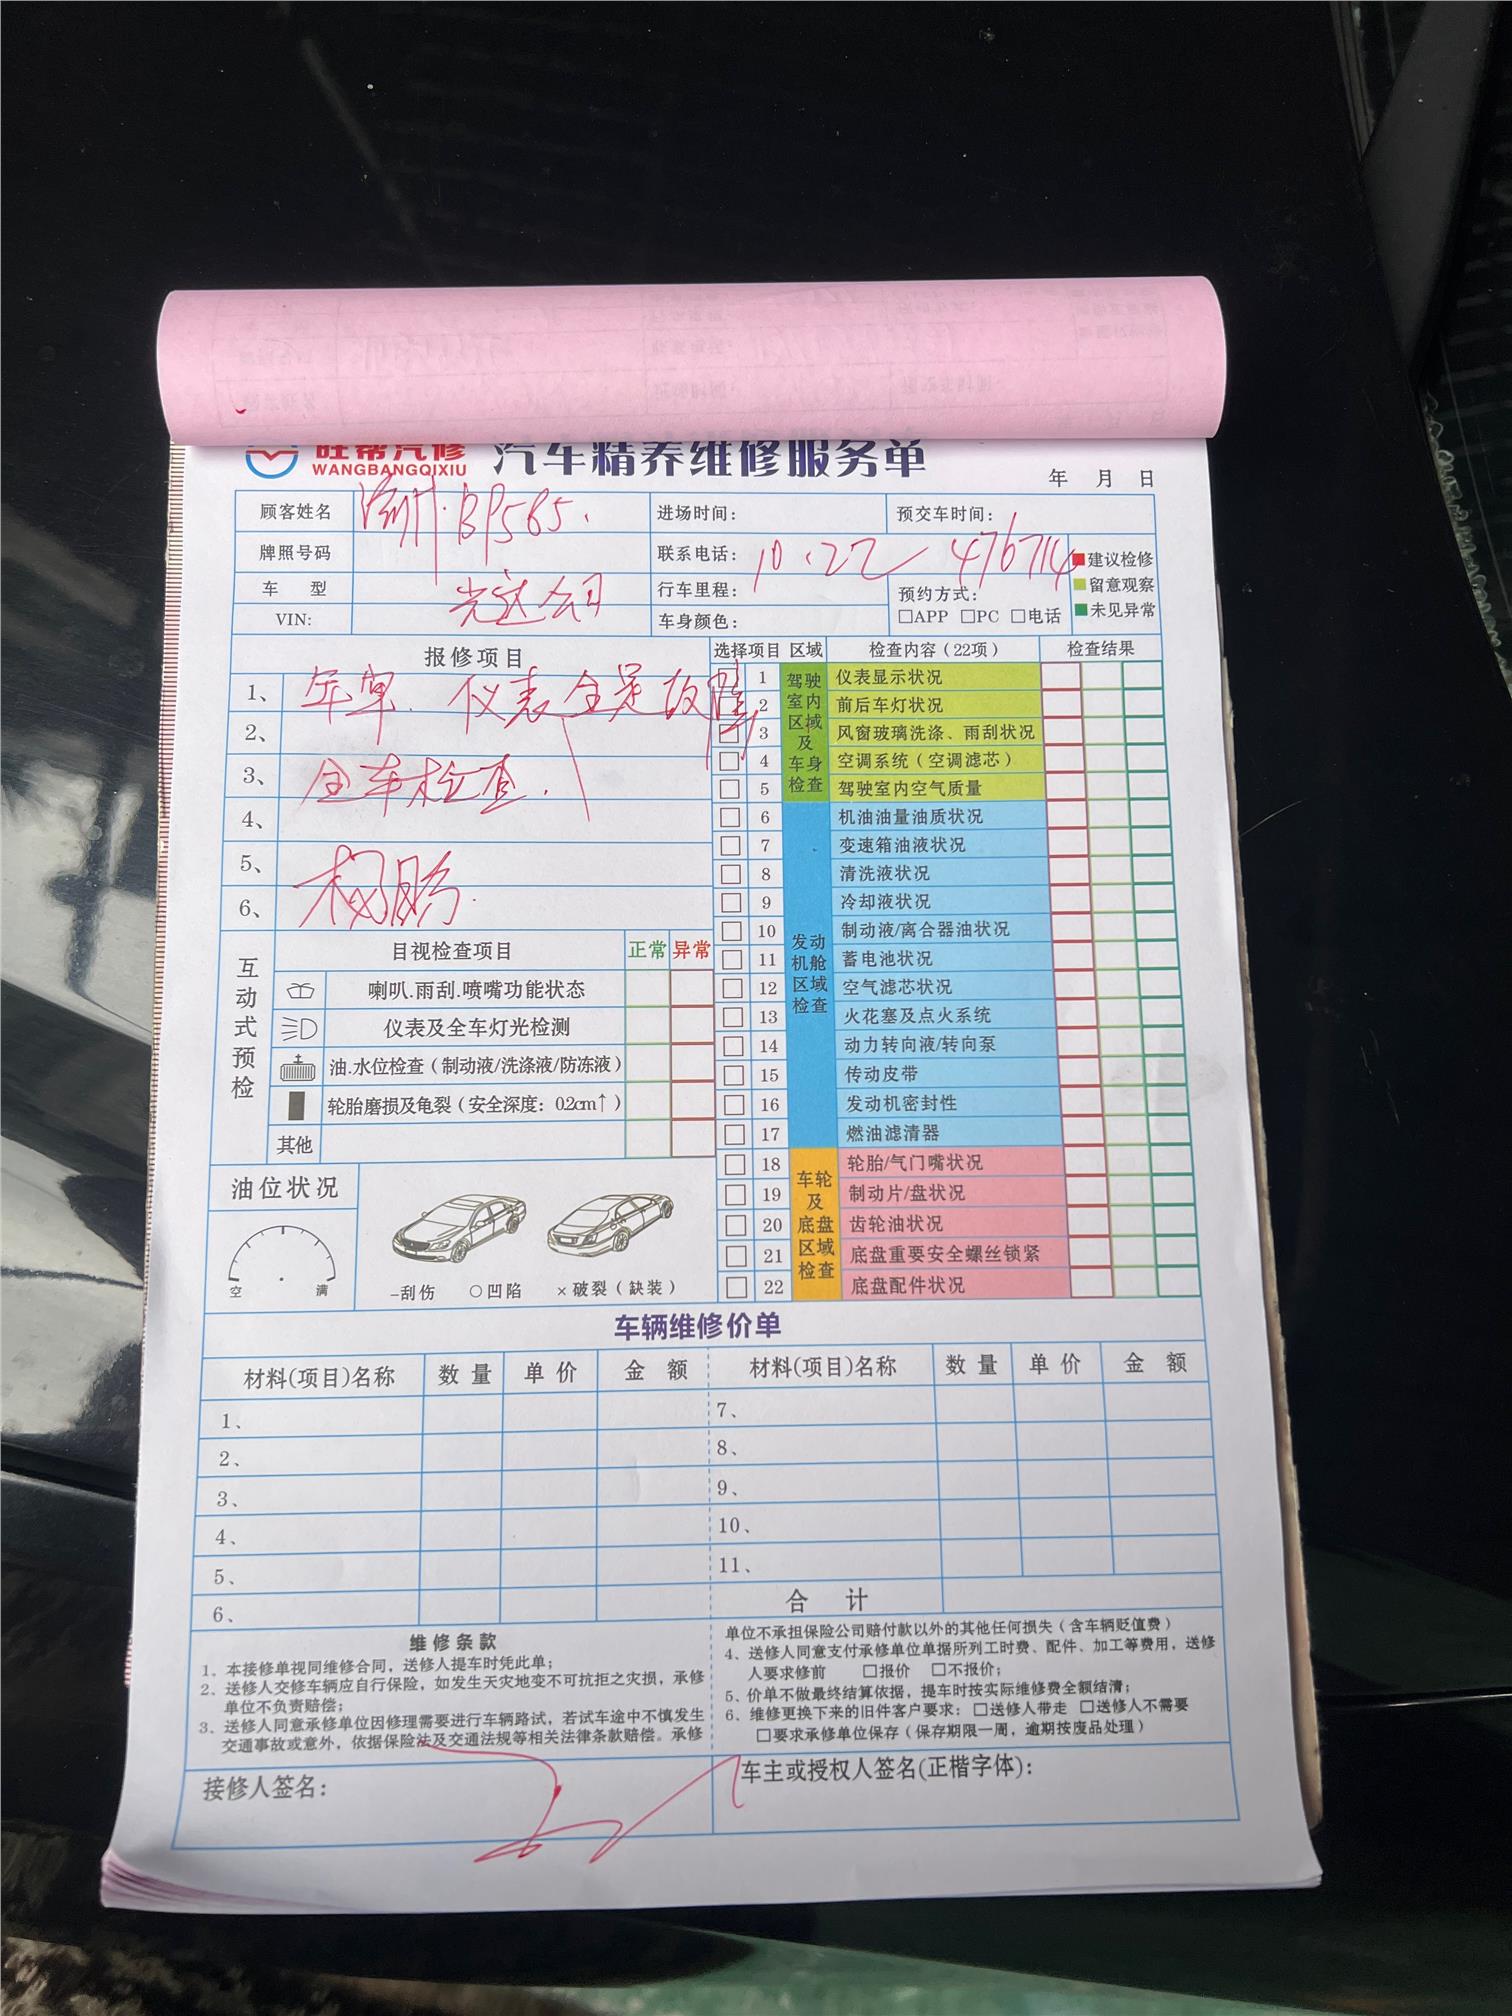 旺帮汽修 汽车精养维修服务单
WANGBANGQIXIU
年 月 日
顾客姓名 BP585. 进场时间： 预交车时间：
牌照号码 联系电话： 10.22 476714
车 型 行车里程： 预约方式：
光达公司
VIN: 车身颜色： □APP □PC □电话
建议检修
留意观察
未见异常
报修项目
1、 年审. 仪表全是故障
2、
3、 全车检查.
4、
5、 杨鹏.
6、
互动式预检
目视检查项目 正常 异常
喇叭.雨刮.喷嘴功能状态
仪表及全车灯光检测
油.水位检查（制动液/洗涤液/防冻液）
轮胎磨损及龟裂（安全深度：0.2cm↑）
其他
油位状况
空 满
–刮伤 ○凹陷 ×破裂（缺装）
选择项目 区域 检查内容（22项） 检查结果
驾驶室内区域及车身检查
1 仪表显示状况
2 前后车灯状况
3 风窗玻璃洗涤、雨刮状况
4 空调系统（空调滤芯）
5 驾驶室内空气质量
发动机舱区域检查
6 机油油量油质状况
7 变速箱油液状况
8 清洗液状况
9 冷却液状况
10 制动液/离合器油状况
11 蓄电池状况
12 空气滤芯状况
13 火花塞及点火系统
14 动力转向液/转向泵
15 传动皮带
16 发动机密封性
17 燃油滤清器
车轮及底盘区域检查
18 轮胎/气门嘴状况
19 制动片/盘状况
20 齿轮油状况
21 底盘重要安全螺丝锁紧
22 底盘配件状况
车辆维修价单
材料(项目)名称 数 量 单 价 金 额 材料(项目)名称 数 量 单 价 金 额
1、 7、
2、 8、
3、 9、
4、 10、
5、 11、
6、 合 计
维修条款
1、本接修单视同维修合同，送修人提车时凭此单；
2、送修人交修车辆应自行保险，如发生天灾地变不可抗拒之灾损，承修
单位不负责赔偿；
3、送修人同意承修单位因修理需要进行车辆路试，若试车途中不慎发生
交通事故或意外，依据保险法及交通法规等相关法律条款赔偿。承修
单位不承担保险公司赔付款以外的其他任何损失（含车辆贬值费）
4、送修人同意支付承修单位单据所列工时费、配件、加工等费用，送修
人要求修前 □报价 □不报价；
5、价单不做最终结算依据，提车时按实际维修费全额结清；
6、维修更换下来的旧件客户要求：□送修人带走 □送修人不需要
□要求承修单位保存（保存期限一周，逾期按废品处理）
接修人签名： 车主或授权人签名(正楷字体)：